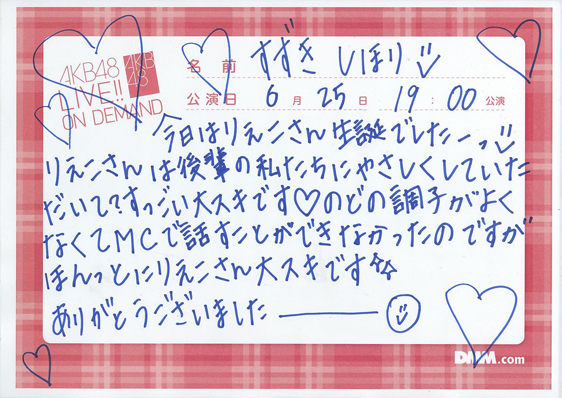 AKB48
LIVE!!
ON DEMAND
AKB
48
名前 すずき しほり
公演日 6月 25日 19:00 公演
今日はりえこさん生誕でしたーっ
りえこさんは後輩の私たちにやさしくしていた
だいて?すっごい大スキです♡のどの調子がよく
なくてMCで話すことができなかったのですが
ほんっとにりえこさん大スキです☆☆
ありがとうございました———
DMM.com